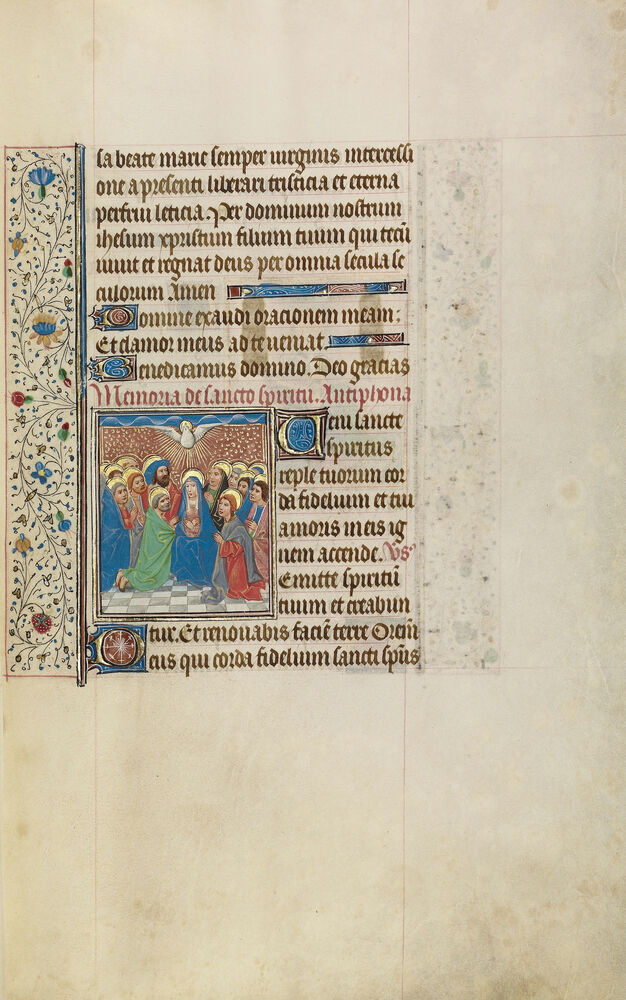 sa beate marie semper uirginis intercessi
one a presenti liberari tristicia et eterna
perfrui leticia. Per dominum nostrum
ihesum xpristum filium tuum qui tecū
uiuit et regnat deus per omnia secula se
culorum Amen
Domine exaudi orationem meam:
Et clamor meus ad te ueniat.
Benedicamus domino. Deo gracias
Memoria de sancto spiritu. Antiphona
Ueni sancte
spiritus
reple tuorum cor
da fidelium et tui
amoris in eis ig
nem accende. Vs
Emitte spiritū
tuum et creabun
tur. Et renouabis faciē terre Orem̄
Deus qui corda fidelium sancti sp̄us